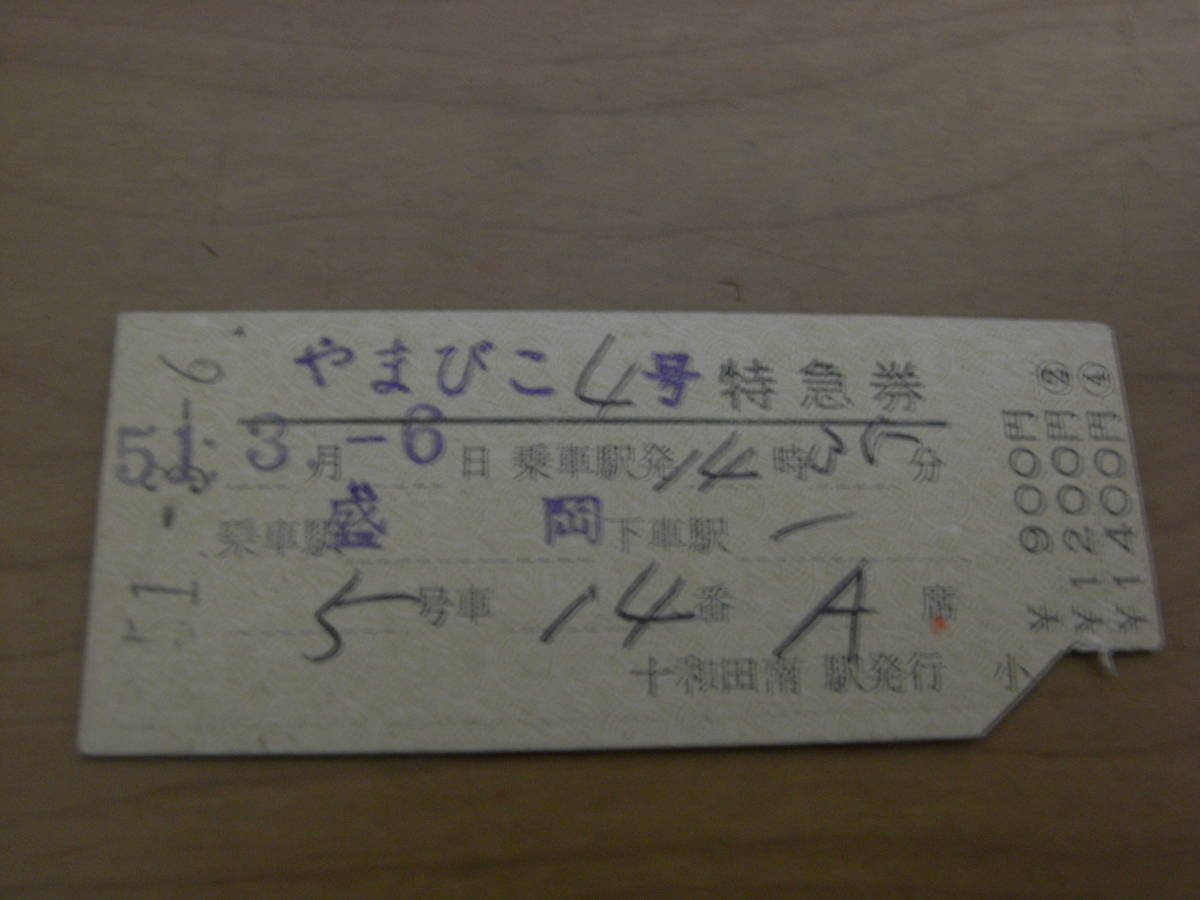 やまびこ4号 特急券
51. 3月-6日 乗車駅発14時 分
乗車駅 盛岡 下車駅
5号車 14番 A席
十和田南駅発行 小
51.-3.-6
¥900円
¥1200円②
¥1400円④